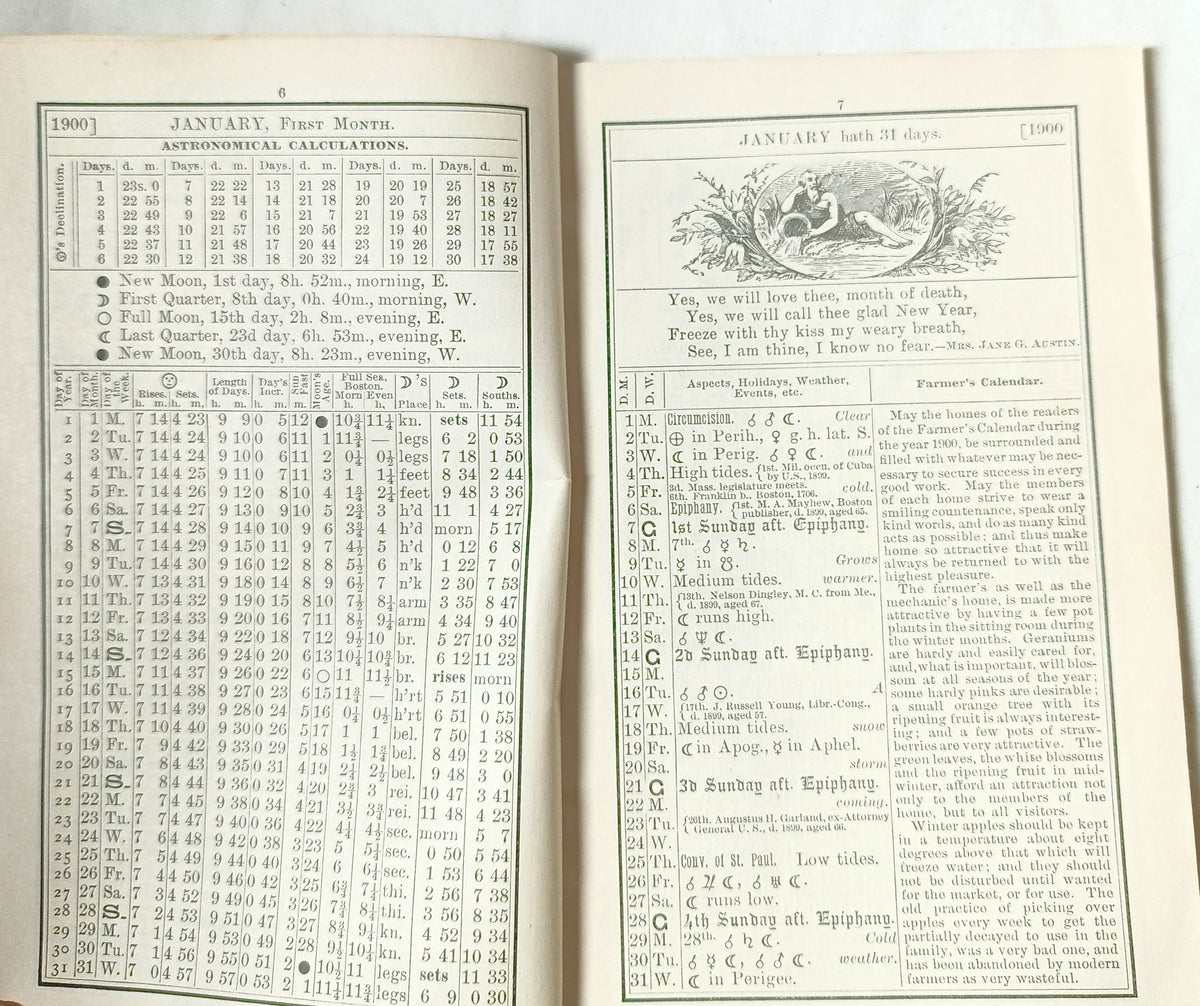 6
1900] JANUARY, First Month.
ASTRONOMICAL CALCULATIONS.
☉'s Declination. Days. d. m. Days. d. m. Days. d. m. Days. d. m. Days. d. m.
1 23s. 0 7 22 22 13 21 28 19 20 19 25 18 57
2 22 55 8 22 14 14 21 18 20 20 7 26 18 42
3 22 49 9 22 6 15 21 7 21 19 53 27 18 27
4 22 43 10 21 57 16 20 56 22 19 40 28 18 11
5 22 37 11 21 48 17 20 44 23 19 26 29 17 55
6 22 30 12 21 38 18 20 32 24 19 12 30 17 38
● New Moon, 1st day, 8h. 52m., morning, E.
☽ First Quarter, 8th day, 0h. 40m., morning, W.
○ Full Moon, 15th day, 2h. 8m., evening, E.
☾ Last Quarter, 23d day, 6h. 53m., evening, E.
● New Moon, 30th day, 8h. 23m., evening, W.
Day of Year. Day of Month. Day of the Week. ☉ Rises. h. m. Sets. h. m. Length of Days. h. m. Day's Incr. h. m. Sun Fast m. Moon's Age. Full Sea, Boston. Morn h. Even, h. ☽'s Place ☽ Sets. h. m. ☽ Souths. h. m.
1 1 M. 7 14 4 23 9 9 0 5 12 ● 10¾ 11¼ kn. sets 11 54
2 2 Tu. 7 14 4 24 9 10 0 6 11 1 11¾ — legs 6 2 0 53
3 3 W. 7 14 4 24 9 10 0 6 11 2 0¼ 0½ legs 7 18 1 50
4 4 Th. 7 14 4 25 9 11 0 7 11 3 1 1¼ feet 8 34 2 44
5 5 Fr. 7 14 4 26 9 12 0 8 10 4 1¾ 2¼ feet 9 48 3 36
6 6 Sa. 7 14 4 27 9 13 0 9 10 5 2¾ 3 h'd 11 1 4 27
7 7 S. 7 14 4 28 9 14 0 10 9 6 3¾ 4 h'd morn 5 17
8 8 M. 7 14 4 29 9 15 0 11 9 7 4½ 5 h'd 0 12 6 8
9 9 Tu. 7 14 4 30 9 16 0 12 8 8 5½ 6 n'k 1 22 7 0
10 10 W. 7 13 4 31 9 18 0 14 8 9 6½ 7 n'k 2 30 7 53
11 11 Th. 7 13 4 32 9 19 0 15 8 10 7½ 8¼ arm 3 35 8 47
12 12 Fr. 7 13 4 33 9 20 0 16 7 11 8½ 9¼ arm 4 34 9 40
13 13 Sa. 7 12 4 34 9 22 0 18 7 12 9½ 10 br. 5 27 10 32
14 14 S. 7 12 4 36 9 24 0 20 6 13 10¼ 10¾ br. 6 12 11 23
15 15 M. 7 11 4 37 9 26 0 22 6 ○ 11 11½ br. rises morn
16 16 Tu. 7 11 4 38 9 27 0 23 6 15 11¾ — h'rt 5 51 0 10
17 17 W. 7 11 4 39 9 28 0 24 5 16 0¼ 0½ h'rt 6 51 0 55
18 18 Th. 7 10 4 40 9 30 0 26 5 17 1 1 bel. 7 50 1 38
19 19 Fr. 7 9 4 42 9 33 0 29 5 18 1½ 1¾ bel. 8 49 2 20
20 20 Sa. 7 8 4 43 9 35 0 31 4 19 2¼ 2½ bel. 9 48 3 0
21 21 S. 7 8 4 44 9 36 0 32 4 20 2¾ 3 rei. 10 47 3 41
22 22 M. 7 7 4 45 9 38 0 34 4 21 3½ 3¾ rei. 11 48 4 23
23 23 Tu. 7 7 4 47 9 40 0 36 4 22 4¼ 4½ sec. morn 5 7
24 24 W. 7 6 4 48 9 42 0 38 3 23 5 5¼ sec. 0 50 5 54
25 25 Th. 7 5 4 49 9 44 0 40 3 24 6 6¼ sec. 1 53 6 44
26 26 Fr. 7 4 4 50 9 46 0 42 3 25 6¾ 7¼ thi. 2 56 7 38
27 27 Sa. 7 3 4 52 9 49 0 45 3 26 7¾ 8¼ thi. 3 56 8 35
28 28 S. 7 2 4 53 9 51 0 47 3 27 8¾ 9¼ kn. 4 52 9 34
29 29 M. 7 1 4 54 9 53 0 49 2 28 9½ 10¼ kn. 5 41 10 34
30 30 Tu. 7 1 4 56 9 55 0 51 2 ● 10½ 11 legs sets 11 33
31 31 W. 7 0 4 57 9 57 0 53 2 1 11¼ 11¾ legs 6 9 0 30
7
JANUARY hath 31 days. [1900
Yes, we will love thee, month of death,
Yes, we will call thee glad New Year,
Freeze with thy kiss my weary breath,
See, I am thine, I know no fear.—Mrs. Jane G. Austin.
D. M. D. W. Aspects, Holidays, Weather, Events, etc.
1 M. Circumcision. ☌ ♂ ☾. Clear
2 Tu. ⊕ in Perih., ♀ g. h. lat. S.
3 W. ☾ in Perig. ☌ ♀ ☾. and
4 Th. High tides. {1st. Mil. occu. of Cuba by U.S., 1899.
5 Fr. 3d. Mass. legislature meets. 6th. Franklin b. Boston, 1706. cold.
6 Sa. Epiphany. {1st. M. A. Mayhew, Boston publisher, d. 1899, aged 65.
7 G 1st Sunday aft. Epiphany.
8 M. 7th. ☌ ☿ ♄.
9 Tu. ☿ in ☋. Grows
10 W. Medium tides. warmer.
11 Th. {13th. Nelson Dingley, M. C. from Me., d. 1899, aged 67.
12 Fr. ☾ runs high.
13 Sa. ☌ ♆ ☾.
14 G 2d Sunday aft. Epiphany.
15 M.
16 Tu. ☌ ♂ ☉. A
17 W. {17th. J. Russell Young, Libr.-Cong., d. 1899, aged 57.
18 Th. Medium tides. snow
19 Fr. ☾ in Apog., ☿ in Aphel.
20 Sa. storm
21 G 3d Sunday aft. Epiphany.
22 M. coming.
23 Tu. {26th. Augustus H. Garland, ex-Attorney General U. S., d. 1899, aged 66.
24 W.
25 Th. Conv. of St. Paul. Low tides.
26 Fr. ☌ ♃ ☾, ☌ ♅ ☾.
27 Sa. ☾ runs low.
28 G 4th Sunday aft. Epiphany.
29 M. 28th. ☌ ♄ ☾. Cold
30 Tu. ☌ ☿ ☾, ☌ ♂ ☾. weather.
31 W. ☾ in Perigee.
Farmer's Calendar.
May the homes of the readers
of the Farmer's Calendar during
the year 1900, be surrounded and
filled with whatever may be nec-
essary to secure success in every
good work. May the members
of each home strive to wear a
smiling countenance, speak only
kind words, and do as many kind
acts as possible; and thus make
home so attractive that it will
always be returned to with the
highest pleasure.
The farmer's as well as the
mechanic's home, is made more
attractive by having a few pot
plants in the sitting room during
the winter months. Geraniums
are hardy and easily cared for,
and, what is important, will blos-
som at all seasons of the year;
some hardy pinks are desirable;
a small orange tree with its
ripening fruit is always interest-
ing; and a few pots of straw-
berries are very attractive. The
green leaves, the white blossoms
and the ripening fruit in mid-
winter, afford an attraction not
only to the members of the
home, but to all visitors.
Winter apples should be kept
in a temperature about eight
degrees above that which will
freeze water; and they should
not be disturbed until wanted
for the market, or for use. The
old practice of picking over
apples every week to get the
partially decayed to use in the
family, was a very bad one, and
has been abandoned by modern
farmers as very wasteful.